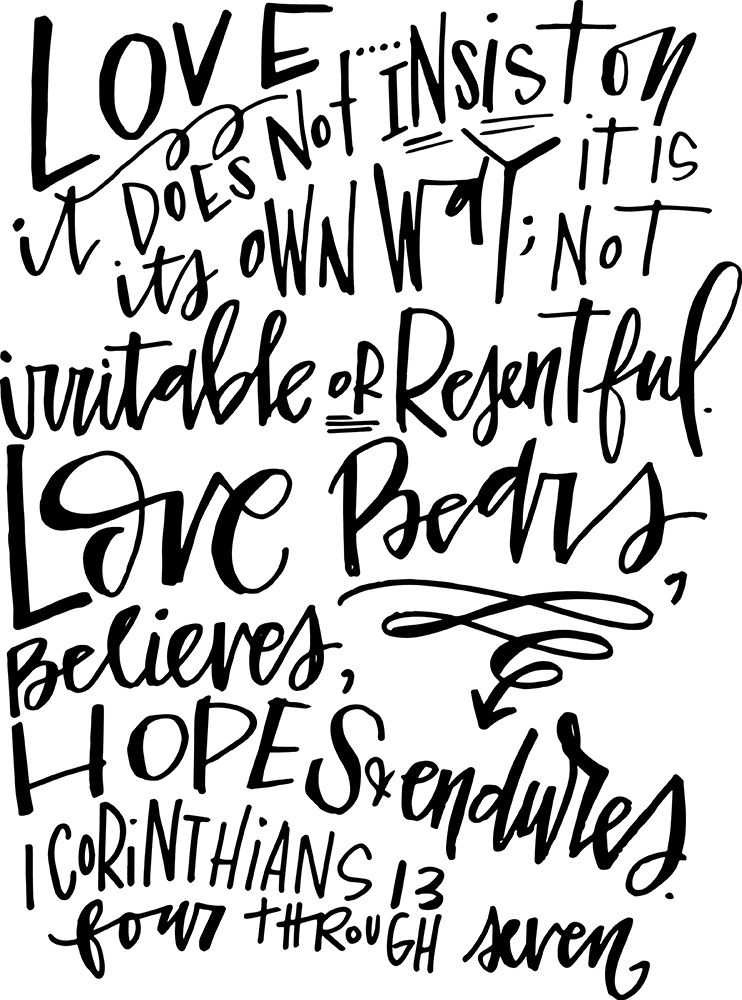 LOVE....
it DOES NOT INSIST on
its OWN WaY; it is NOT
irritable OR Resentful.
Love Bears,
Believes,
HOPES & endures.
1 CORiNTHiANS 13
four THROUGH seven